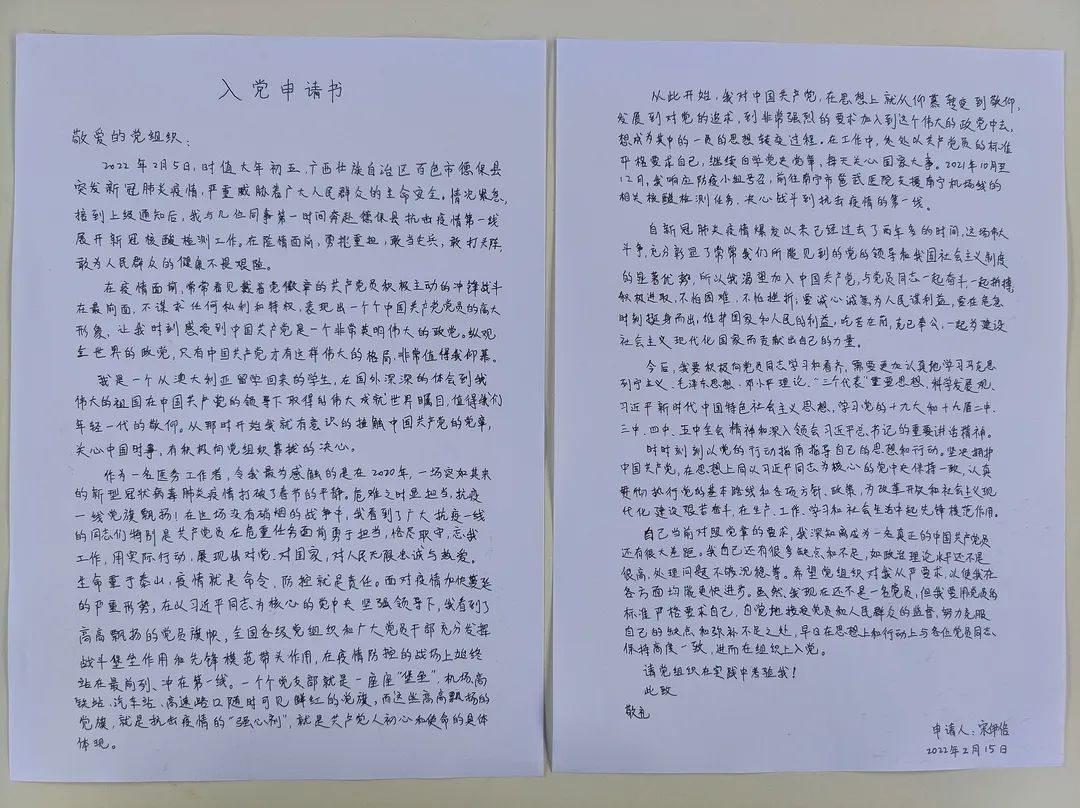 入党申请书
敬爱的党组织：
2022年2月5日，时值大年初五，广西壮族自治区百色市德保县
突发新冠肺炎疫情，严重威胁着广大人民群众的生命安全。情况紧急，
接到上级通知后，我与几位同事第一时间奔赴德保县抗击疫情第一线
展开新冠核酸检测工作，在险情面前，勇挑重担，敢当尖兵，敢打头阵，
敢为人民群众的健康不畏艰险。
在疫情面前，常常看见戴着党徽章的共产党员积极主动的冲锋战斗
在最前面，不谋求任何私利和特权，表现出一个个中国共产党党员的高大
形象，让我时刻感受到中国共产党是一个非常英明伟大的政党。纵观
全世界的政党，只有中国共产党才有这样伟大的格局，非常值得我仰慕。
我是一个从澳大利亚留学回来的学生，在国外深深的体会到我
伟大的祖国在中国共产党的领导下取得的伟大成就世界瞩目，值得我们
年轻一代的敬仰。从那时开始我就有意识的接触中国共产党的党章，
关心中国时事，有积极向党组织靠拢的决心。
作为一名医务工作者，令我最为感触的是在2020年，一场突如其来
的新型冠状病毒肺炎疫情打破了春节的平静。危难之时显担当，抗疫
一线党旗飘扬！在这场没有硝烟的战争中，我看到了广大抗疫一线
的同志们特别是共产党员在危重任务面前勇于担当，恪尽职守，忘我
工作，用实际行动，展现出对党、对国家，对人民无限忠诚与热爱。
生命重于泰山，疫情就是命令，防控就是责任。面对疫情加快蔓延
的严重形势，在以习近平同志为核心的党中央坚强领导下，我看到了
高高飘扬的党员旗帜，全国各级党组织和广大党员干部充分发挥
战斗堡垒作用和先锋模范带头作用，在疫情防控的战场上始终
站在最前列、冲在第一线。一个个党支部就是一座座“堡垒”，机场、高
铁站、汽车站、高速路口随时可见鲜红的党旗，而这些高高飘扬的
党旗，就是抗击疫情的“强心剂”，就是共产党人初心和使命的具体
体现。
从此开始，我对中国共产党，在思想上就从仰慕转变到敬仰，
发展到对党的追求，到非常强烈的要求加入到这个伟大的政党中去，
想成为其中的一员的思想转变过程。在工作中，处处以共产党员的标准
严格要求自己，继续自学党史党章，每天关心国家大事。2021年10月至
12月，我响应防疫小组号召，前往南宁市邕武医院支援南宁机场线的
相关核酸检测任务，决心战斗到抗击疫情的第一线。
自新冠肺炎疫情爆发以来已经过去了两年多的时间，这场伟大
斗争，充分彰显了常常我们所能见到的党的领导和我国社会主义制度
的显著优势，所以我渴望加入中国共产党，与党员同志一起奋斗，一起拼搏，
积极进取，不怕困难，不怕挫折；要诚心诚意为人民谋利益，要在危急
时刻挺身而出，维护国家和人民的利益，吃苦在前，克己奉公，一起为建设
社会主义现代化国家而贡献出自己的力量。
今后，我要积极向党员同志学习和看齐，需要更加认真地学习马克思
列宁主义、毛泽东思想、邓小平理论、“三个代表”重要思想、科学发展观、
习近平新时代中国特色社会主义思想，学习党的十九大和十九届二中、
三中、四中、五中全会精神和深入领会习近平总书记的重要讲话精神。
时时刻刻以党的行动指南指导自己的思想和行动。坚决拥护
中国共产党，在思想上同以习近平同志为核心的党中央保持一致，认真
贯彻执行党的基本路线和各项方针、政策，为改革开放和社会主义现代
化建设艰苦奋斗，在生产、工作、学习和社会生活中起先锋模范作用。
自己当前对照党章的要求，我深知离成为一名真正的中国共产党员
还有很大差距。我自己还有很多缺点和不足，如政治理论水平还不是
很高，处理问题不够沉稳等。希望党组织对我从严要求，以使我在
各方面均能更快进步。虽然，我现在还不是一名党员，但我要用党员的
标准严格要求自己，自觉地接受党员和人民群众的监督，努力克服
自己的缺点和弥补不足之处，早日在思想上和行动上与各位党员同志、
保持高度一致，进而在组织上入党。
请党组织在实践中考验我！
此致
敬礼
申请人：宋伊怡
2022年2月15日